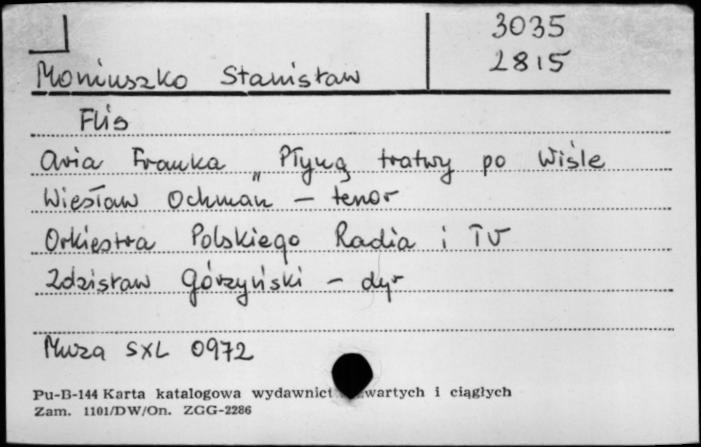 3035
2815
Moniuszko Stanisław
Flis
Aria Franka „Płyną tratwy po Wiśle
Wiesław Ochman – tenor
Orkiestra Polskiego Radia i TV
Zdzisław Górzyński – dyr
Muza SXL 0972
Pu-B-144 Karta katalogowa wydawnict wartych i ciągłych
Zam. 1101/DW/On. ZGG-2286